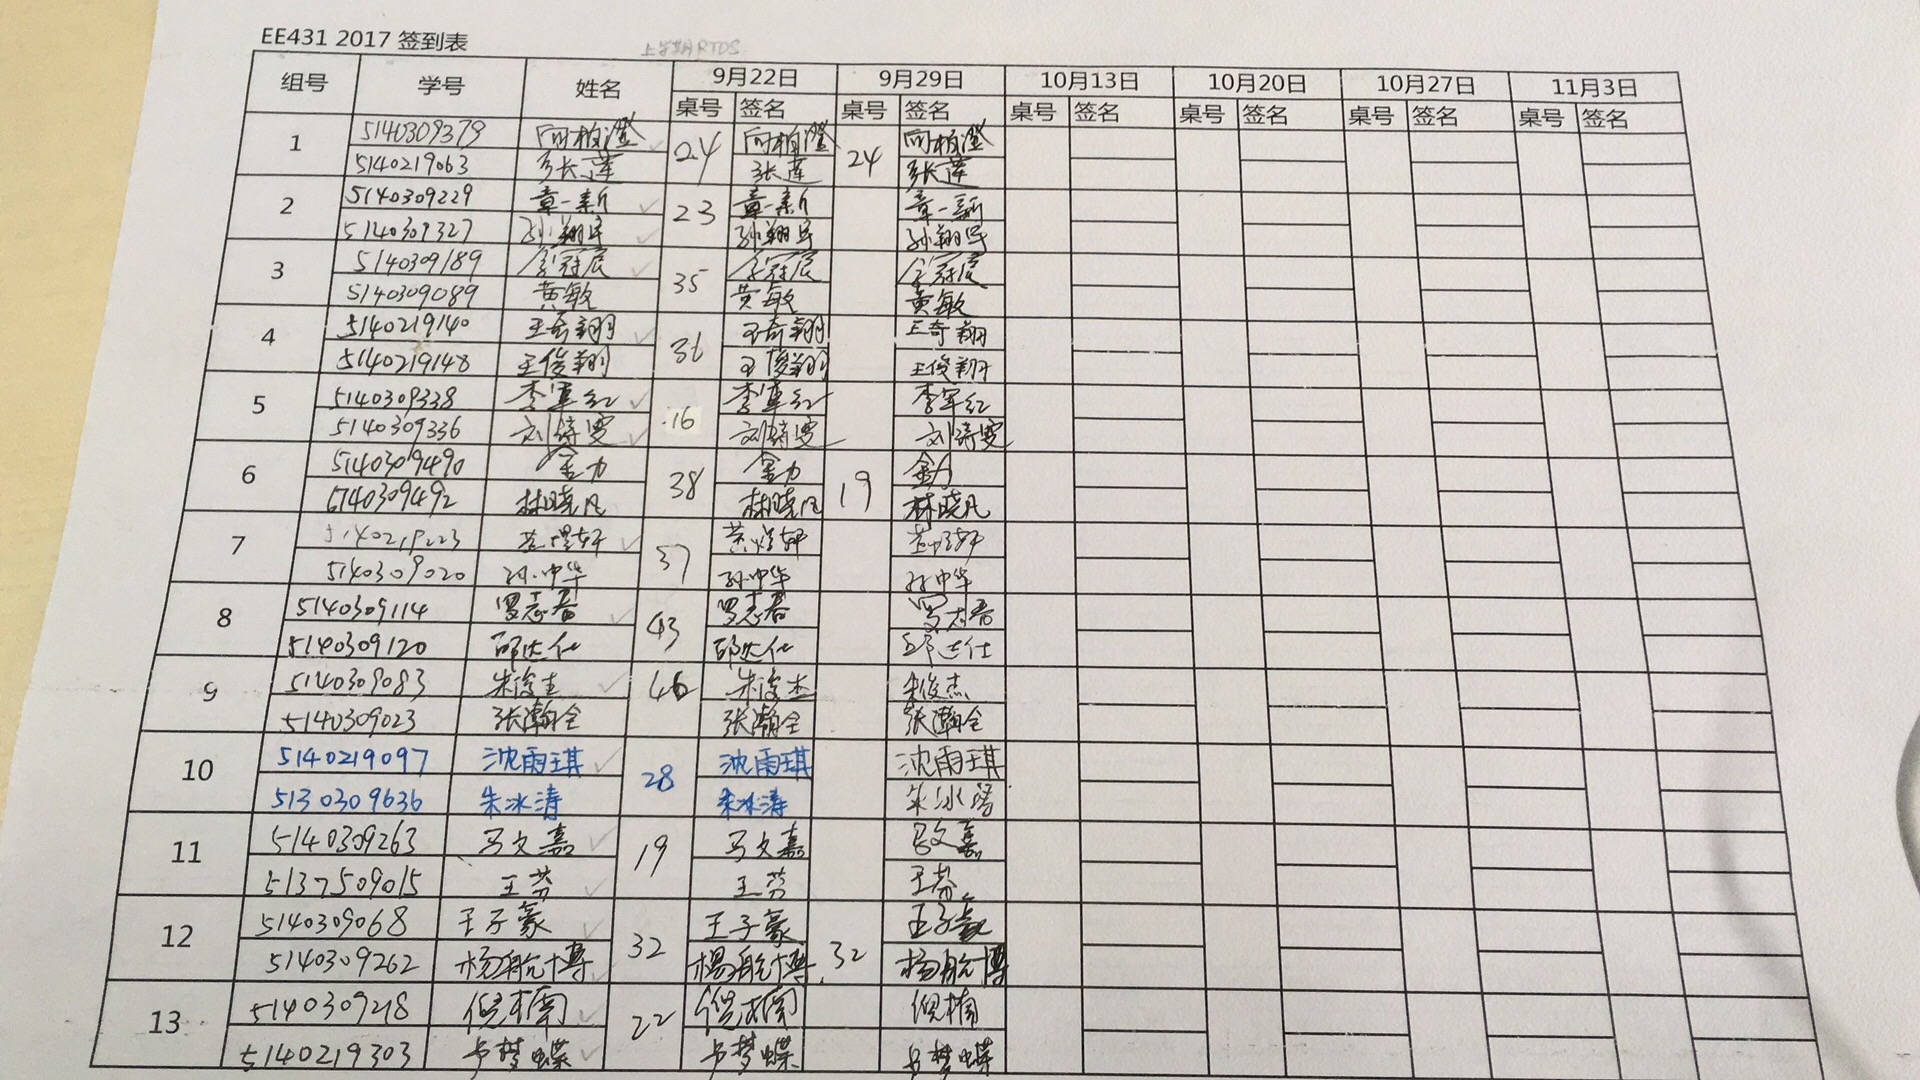 EE431 2017 签到表
上学期RTDS
组号 学号 姓名 9月22日 9月29日 10月13日 10月20日 10月27日 11月3日
桌号 签名 桌号 签名 桌号 签名 桌号 签名 桌号 签名 桌号 签名
1 5140309379 向柏澄 24 向柏澄 24 向柏澄
5140219063 张莲 张莲 张莲
2 5140309229 章一新 23 章一新 章一新
5140309327 孙翔宇 孙翔宇 孙翔宇
3 5140309189 李冠宸 35 李冠宸 李冠宸
5140309089 黄敏 黄敏 黄敏
4 5140219140 王奇翔 36 王奇翔 王奇翔
5140219148 王俊翔 王俊翔 王俊翔
5 5140309338 李军红 16 李军红 李军红
5140309336 刘诗雯 刘诗雯 刘诗雯
6 5140309490 金力 38 金力 19 金力
5140309492 林晓凡 林晓凡 林晓凡
7 5140219223 37
5140309020 孙中华 孙中华 孙中华
8 5140309114 罗志春 43 罗志春 罗志春
5140309120 邱达仕 邱达仕 邱达仕
9 5140309083 朱俊杰 46 朱俊杰 朱俊杰
5140309023 张瀚全 张瀚全 张瀚全
10 5140219097 沈雨琪 28 沈雨琪 沈雨琪
5130309636 朱冰涛 朱冰涛 朱冰涛
11 5140309263 马文嘉 19 马文嘉 马文嘉
5137509015 王芬 王芬 王芬
12 5140309068 王子豪 32 王子豪 32 王子豪
5140309262 杨航博 杨航博 杨航博
13 5140309218 倪楠 22 倪楠 倪楠
5140219303 卢梦蝶 卢梦蝶 卢梦蝶